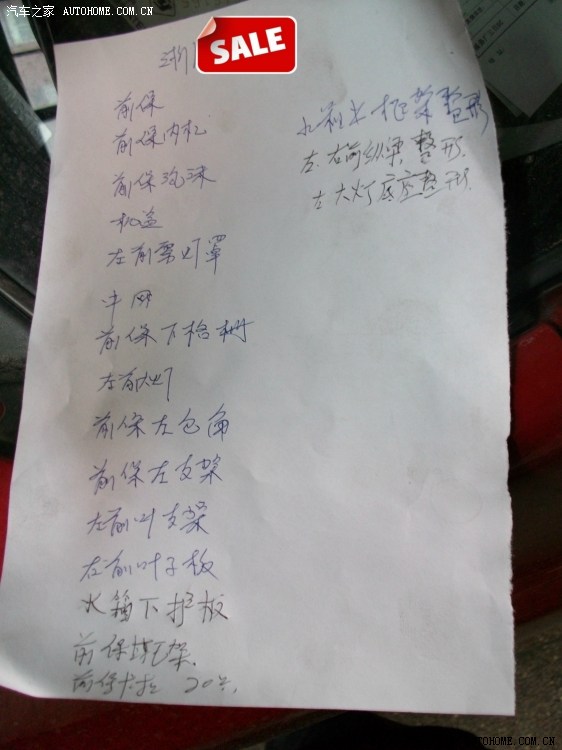 汽车之家 AUTOHOME.COM.CN
浙
SALE
前保
前保内杠
前保泡沫
机盖
左前雾灯罩
中网
前保下格栅
左前大灯
前保左包角
前保左支架
左前叶支架
左前叶子板
水箱下护板
前保 架
前保卡扣 20
水箱 框架整形
左右前纵梁整形
左大灯底座整形
AUTOHOME.COM.CN